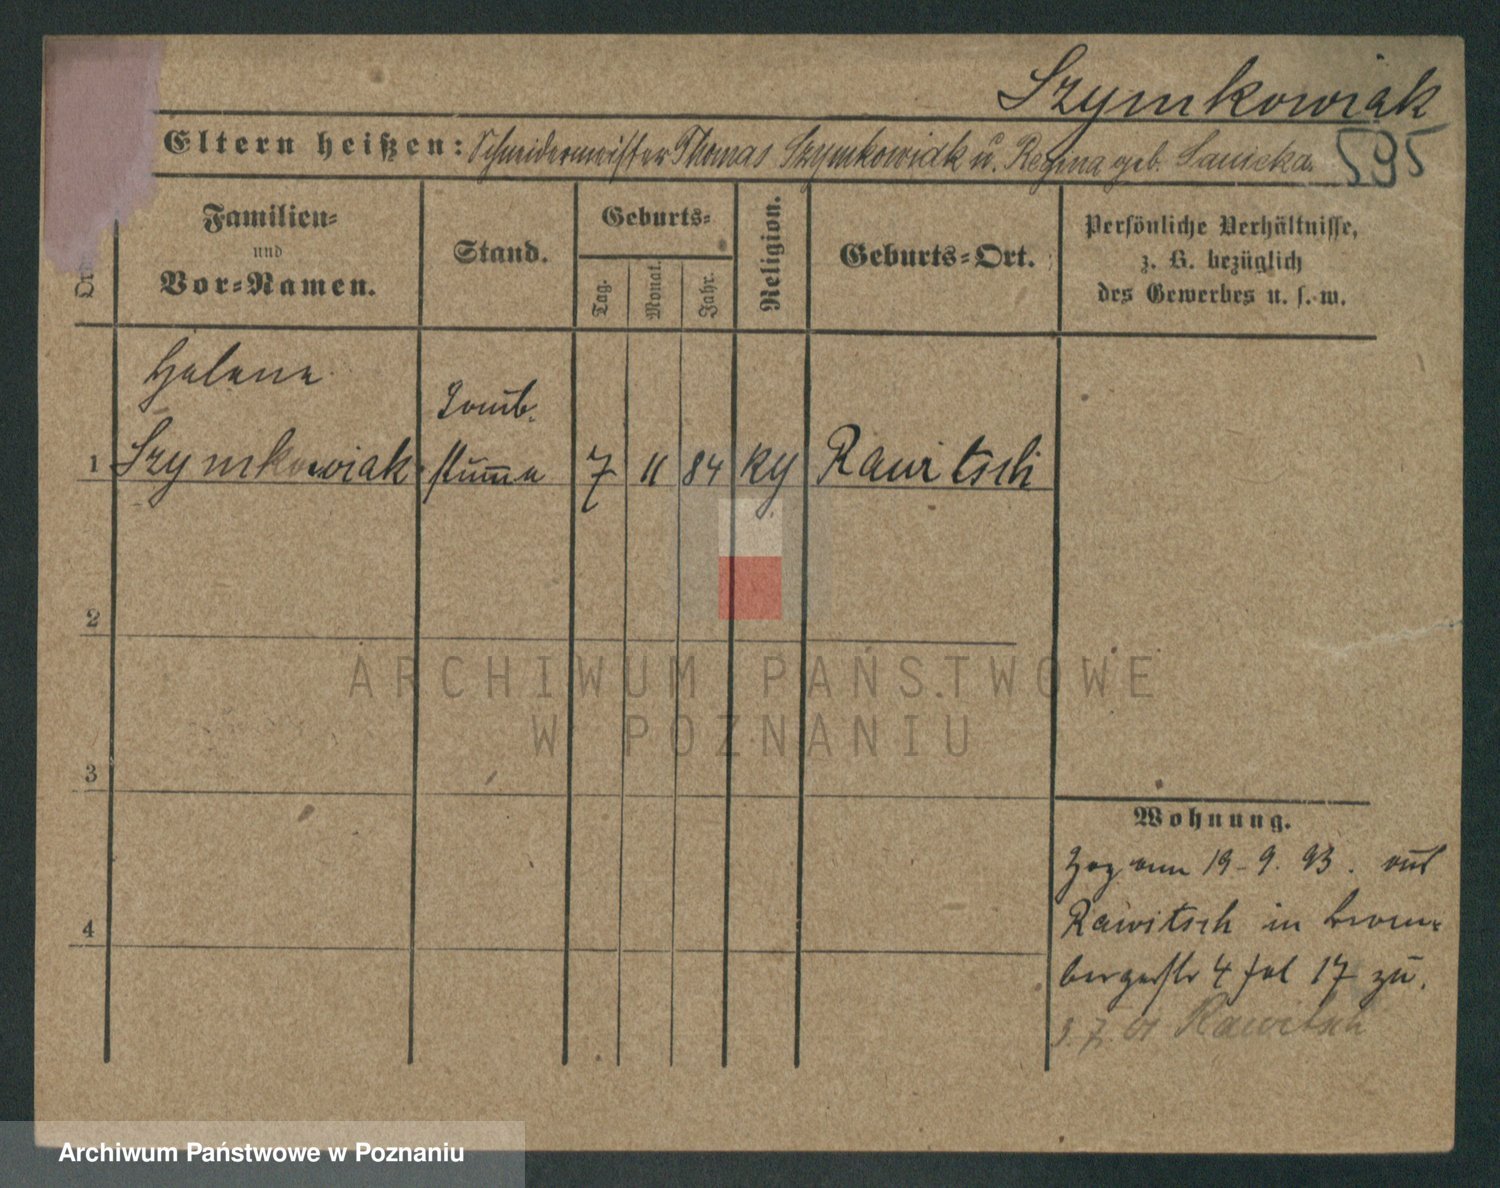 Szymkowiak
595
Eltern heißen: Schneidermeister Thomas Szymkowiak u. Regina geb.
Familien-
und
Vor-Namen.
Stand.
Geburts-
Tag.
Monat.
Jahr.
Religion.
Geburts-Ort.
Persönliche Verhältnisse,
z. B. bezüglich
des Gewerbes u. s. w.
Helene
Taub-
1 Szymkowiak stumm 7 11 84 Rawitsch
2
3
4
Wohnung.
Zog am 19-9. 93. aus
Rawitsch in Brom-
bergerstr 4 17 zu.
Rawitsch
ARCHIWUM PAŃSTWOWE
W POZNANIU
Archiwum Państwowe w Poznaniu